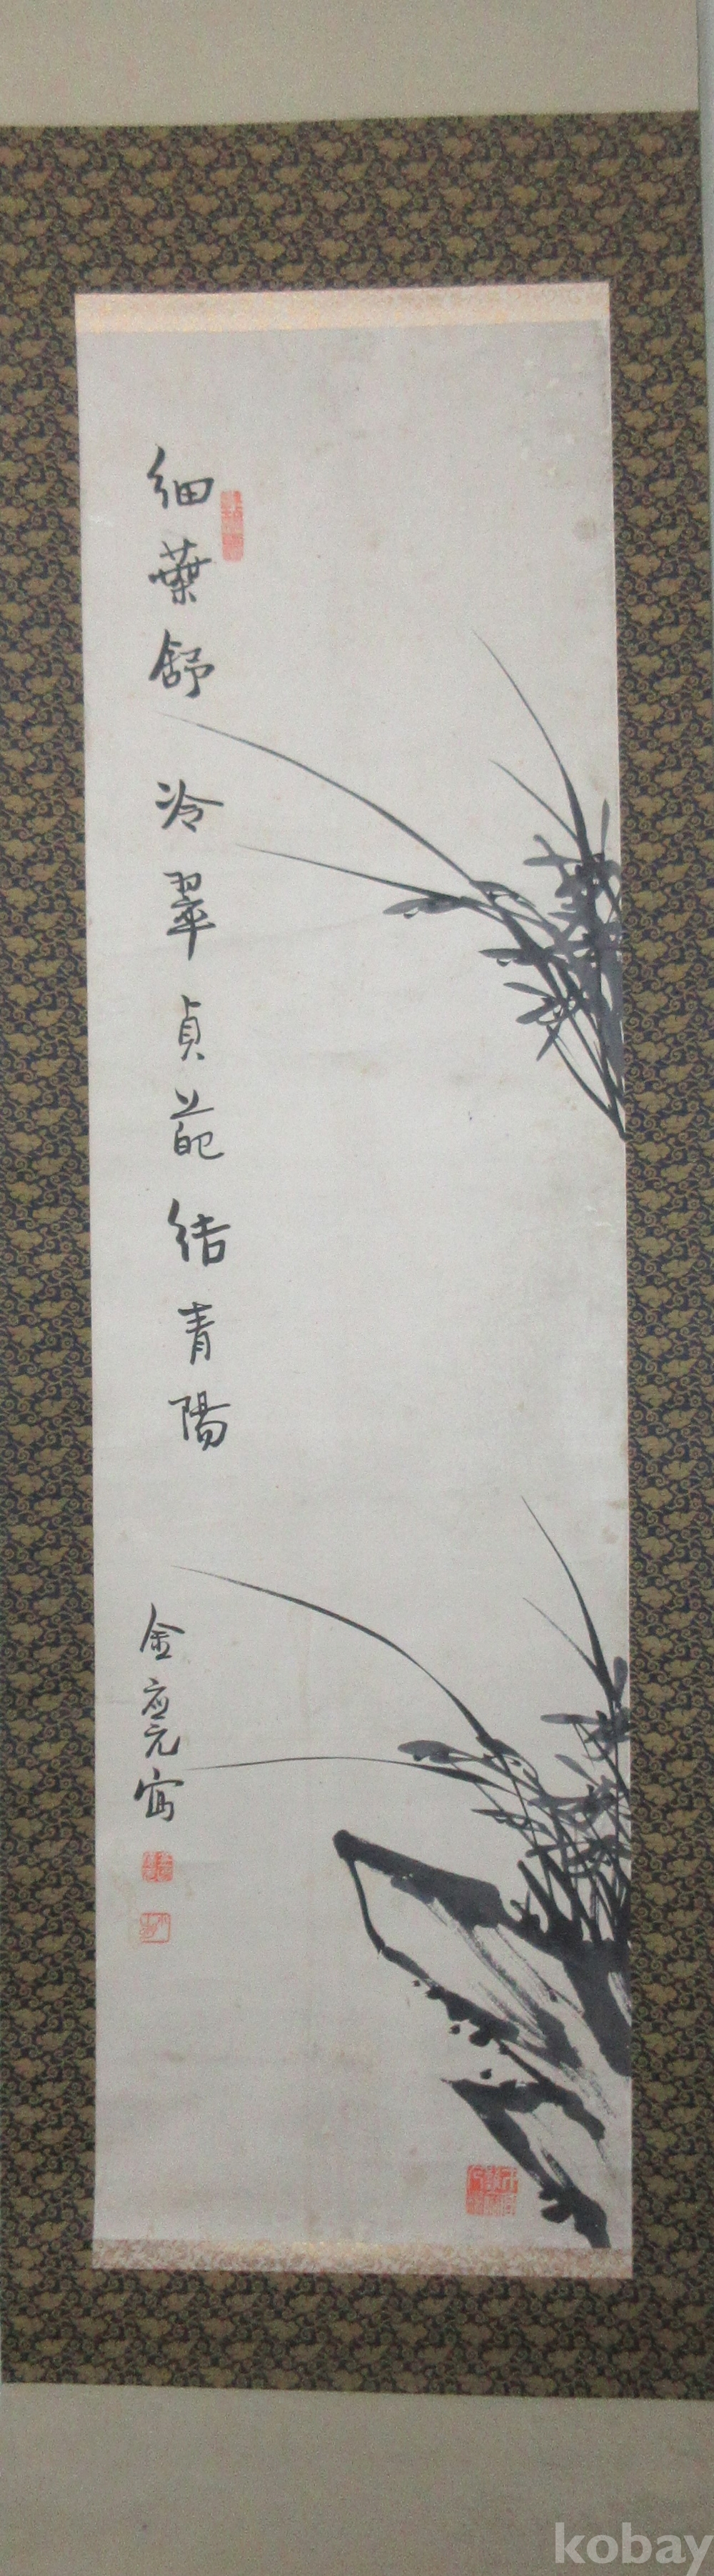 細葉舒冷翠貞葩結青陽
金应元寫
kobay